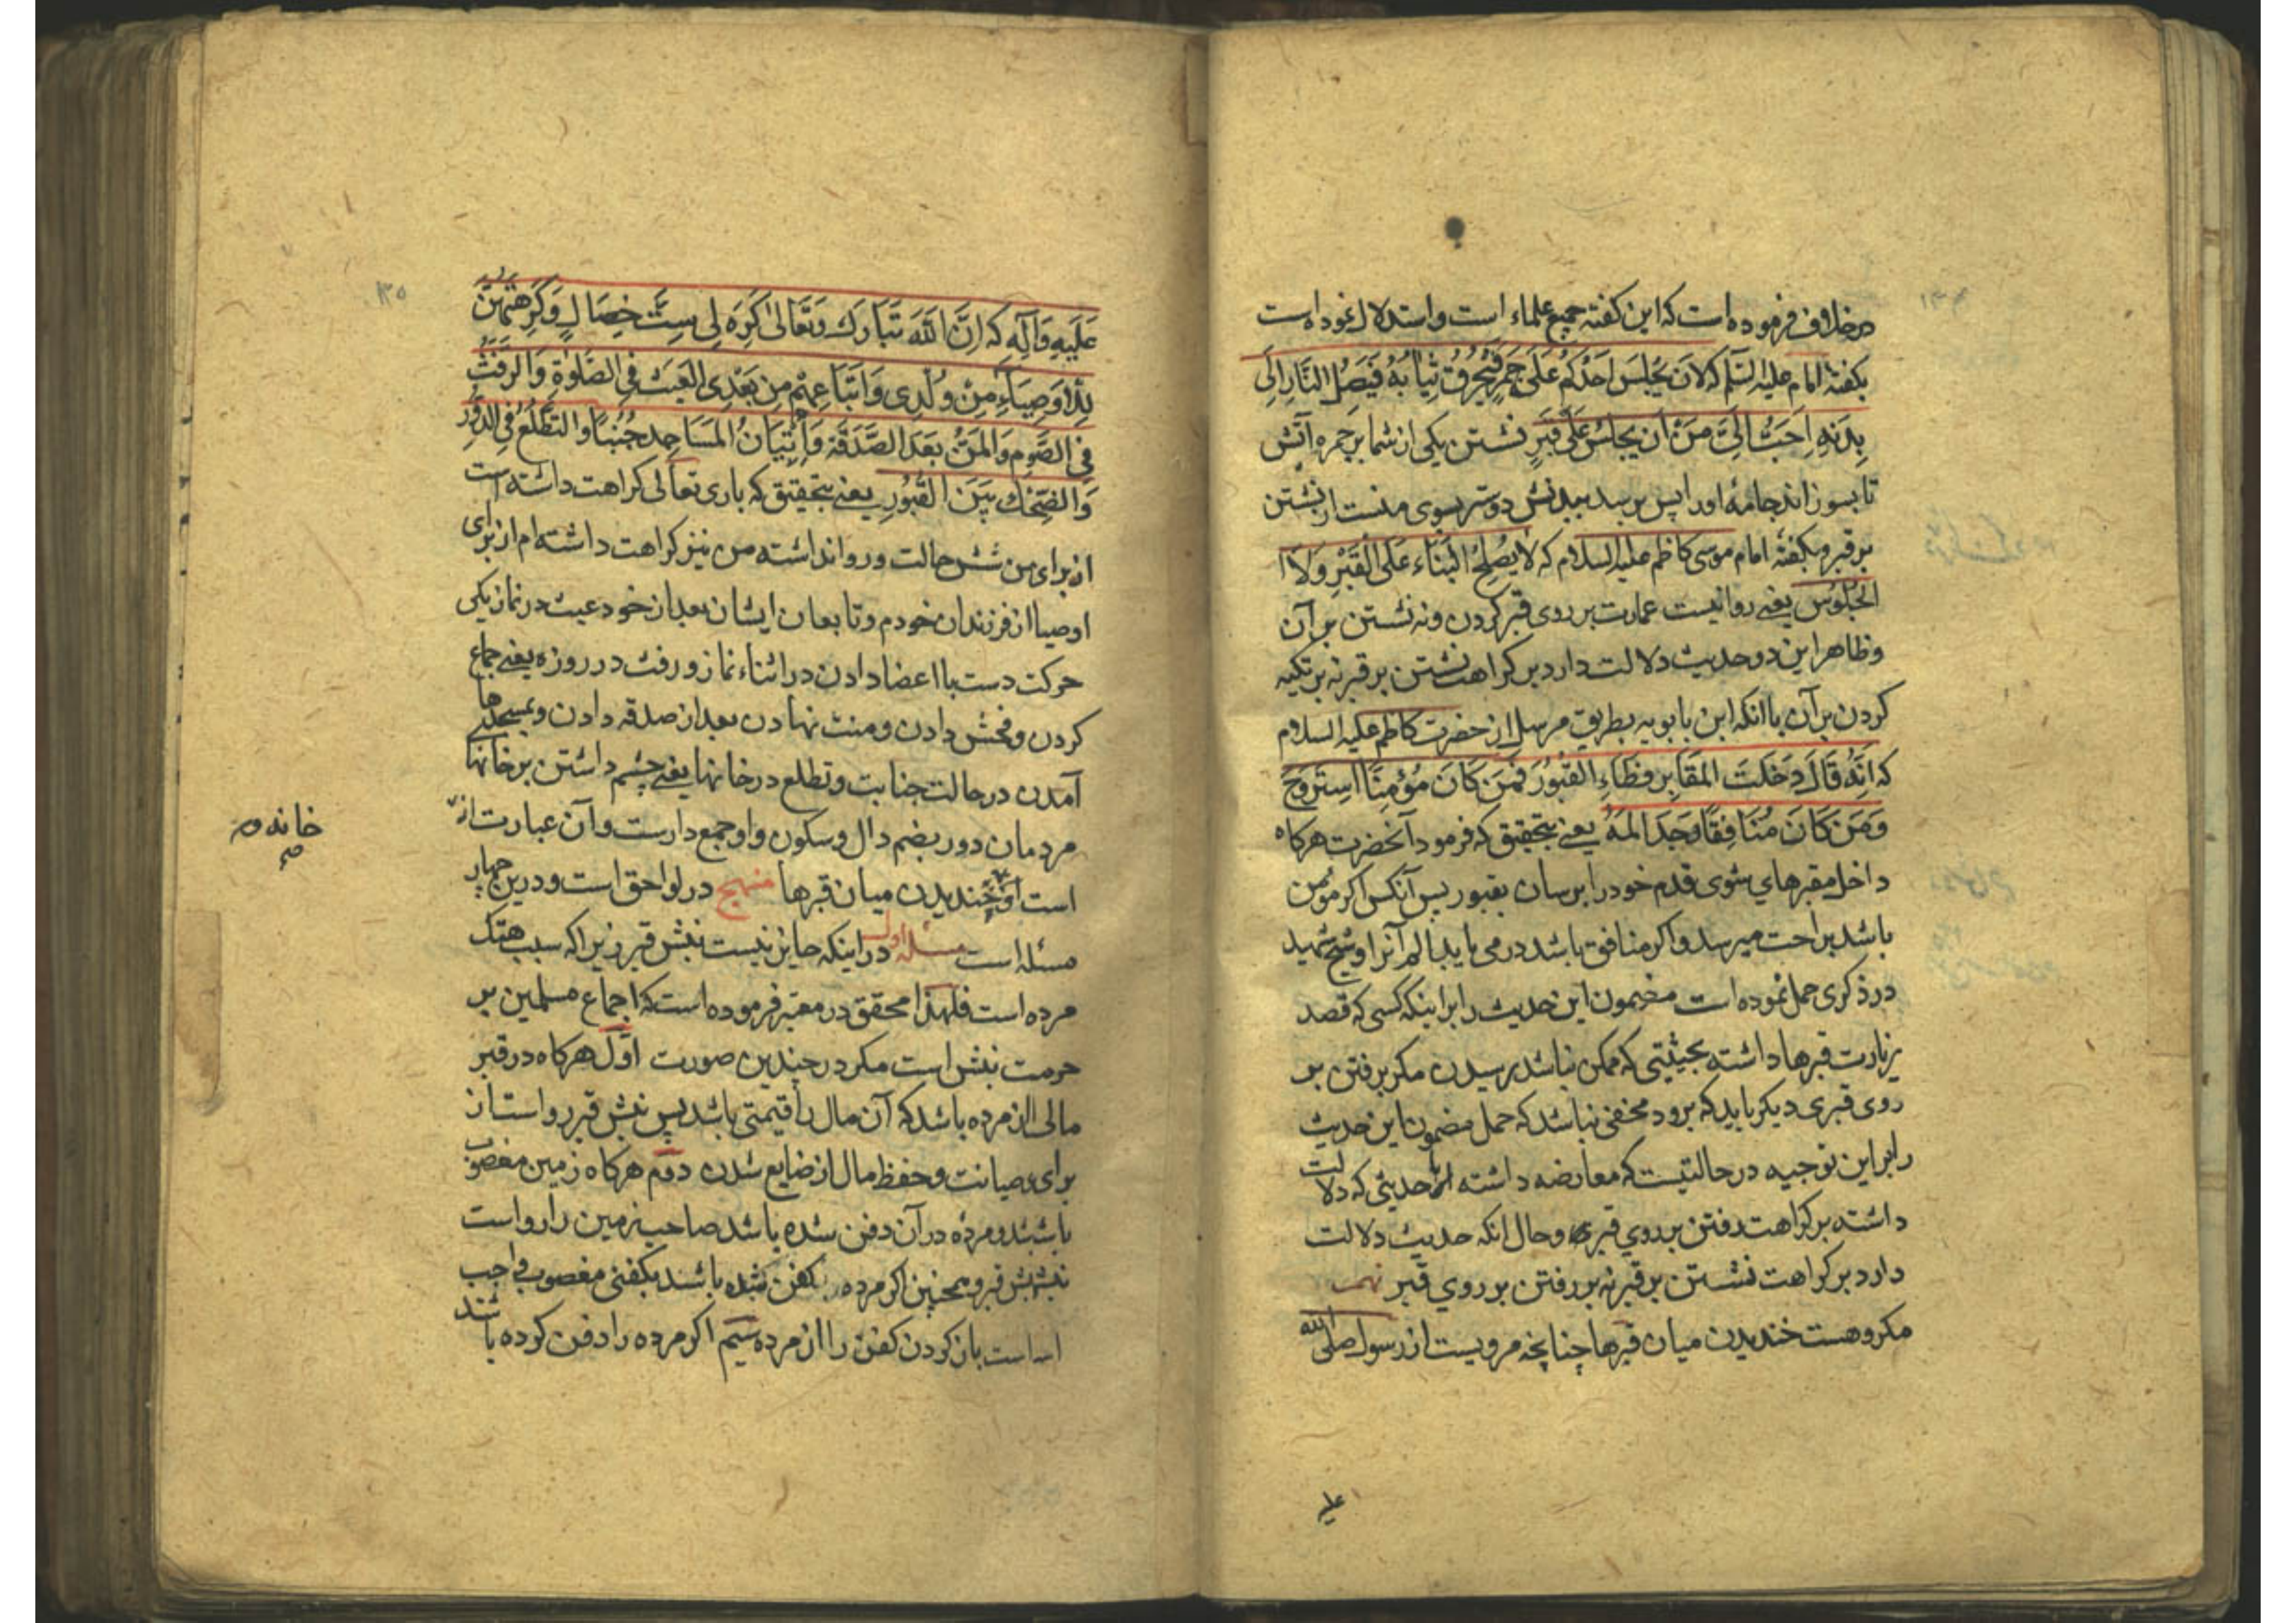 ۱۳۴
در خلاف فرموده است که این کفته جمیع علماء است واستدلال نموده است
بکفتهٔ امام علیه السّلم که لان یجلس احدکم علی جمر فتحرق ثیابه فیصل النار الی
بدنه احبّ الیّ من ان یجلس علی قبر نشستن یکی از شما بر جمره آتش
تا بسوزاند جامهٔ او را پس برسد ببدنش دوستر بسوی منست از نشستن
بر قبر وبکفتهٔ امام موسی کاظم علیه السلام که لا یصلح البناء علی القبر ولا
الجلوس یعنے روا نیست عمارت بر روی قبر کردن ونه نشستن بر آن
وظاهر این دو حدیث دلالت دارد بر کراهت نشستن بر قبر نه بر تکیه
کردن بر آن با انکه ابن بابویه بطریق مرسل از حضرت کاظم علیه السلام
که انّه قال دخلت المقابر فطاء القبور فمن کان مؤمنًا استروح
ومن کان منافقًا وجد المه یعنے بتحقیق که فرمود آنحضرت هرکاه
داخل مقبرهای شوی قدم خود را برسان بقبور پس آنکس اکر مؤمن
باشد براحت میرسد واکر منافق باشد در می یابد الم آنرا وشیخ شهید
در ذکری حمل نموده است مضمون این حدیث را بر اینکه کسی که قصد
زیارت قبرها داشته بحیثیتی که ممکن نباشد رسیدن مکر برفتن بر
روی قبری دیکر باید که برود مخفی نباشد که حمل مضمون این حدیث
را بر این توجیه در حالتیست که معارضه داشته با حدیثی که دلالت
داشته بر کراهت رفتن بر روی قبری وحال انکه حدیث دلالت
دارد بر کراهت نشستن بر قبر نه بر رفتن بر روی قبر نهم
مکروهست خندیدن میان قبرها چنانچه مرویست از رسول صلی الله
علیه
۱۳۵
علیه وآله که انّ الله تبارک وتعالی کره لی ستّ خصال وکرهتهنّ
للاوصیاء من ولدی واتباعهم من بعدی العبث فی الصّلوة والرّفث
فی الصّوم والمنّ بعد الصّدقة واتیان المساجد جنبًا والتطلّع فی الدّور
والضّحک بین القبور یعنے بتحقیق که باری تعالی کراهت داشته است
از برای من شش حالت وروا نداشته من نیز کراهت داشته ام از برای
اوصیا از فرزندان خودم وتابعان ایشان بعد از خود عبث در نماز یکی
حرکت دست با اعضا دادن در اثناء نماز ورفث در روزه یعنے جماع
کردن وفحش دادن ومنت نهادن بعد از صدقه دادن وبمسجدها
آمدن در حالت جنابت وتطلع در خانها یعنے چشم داشتن بر خانها
مردمان دور بضم دال وسکون واو جمع دارست وآن عبارت از
خانه
است وخندیدن میان قبرها منهج در لواحق است ودرین چهار
مسئله است مسئله اول در اینکه جایز نیست نبش قبر زیرا که سبب هتک
مرده است فلهذا محقق در معتبر فرموده است که اجماع مسلمین بر
حرمت نبش است مکر در چندین صورت اوّل هرکاه در قبر
مالی از مرده باشد که آن مال را قیمتی باشد پس نبش قبر رواست از
برای صیانت وحفظ مال از ضایع شدن دوّم هرکاه زمین مغصوب
باشد ومرده در آن دفن شده باشد صاحب زمین را رواست
نبش قبر وهمچنین اکر مرده بکفن شده باشند بکفنی مغصوب واجب
است باز کردن کفن را از مرده سیّم اکر مرده را دفن کرده باشند